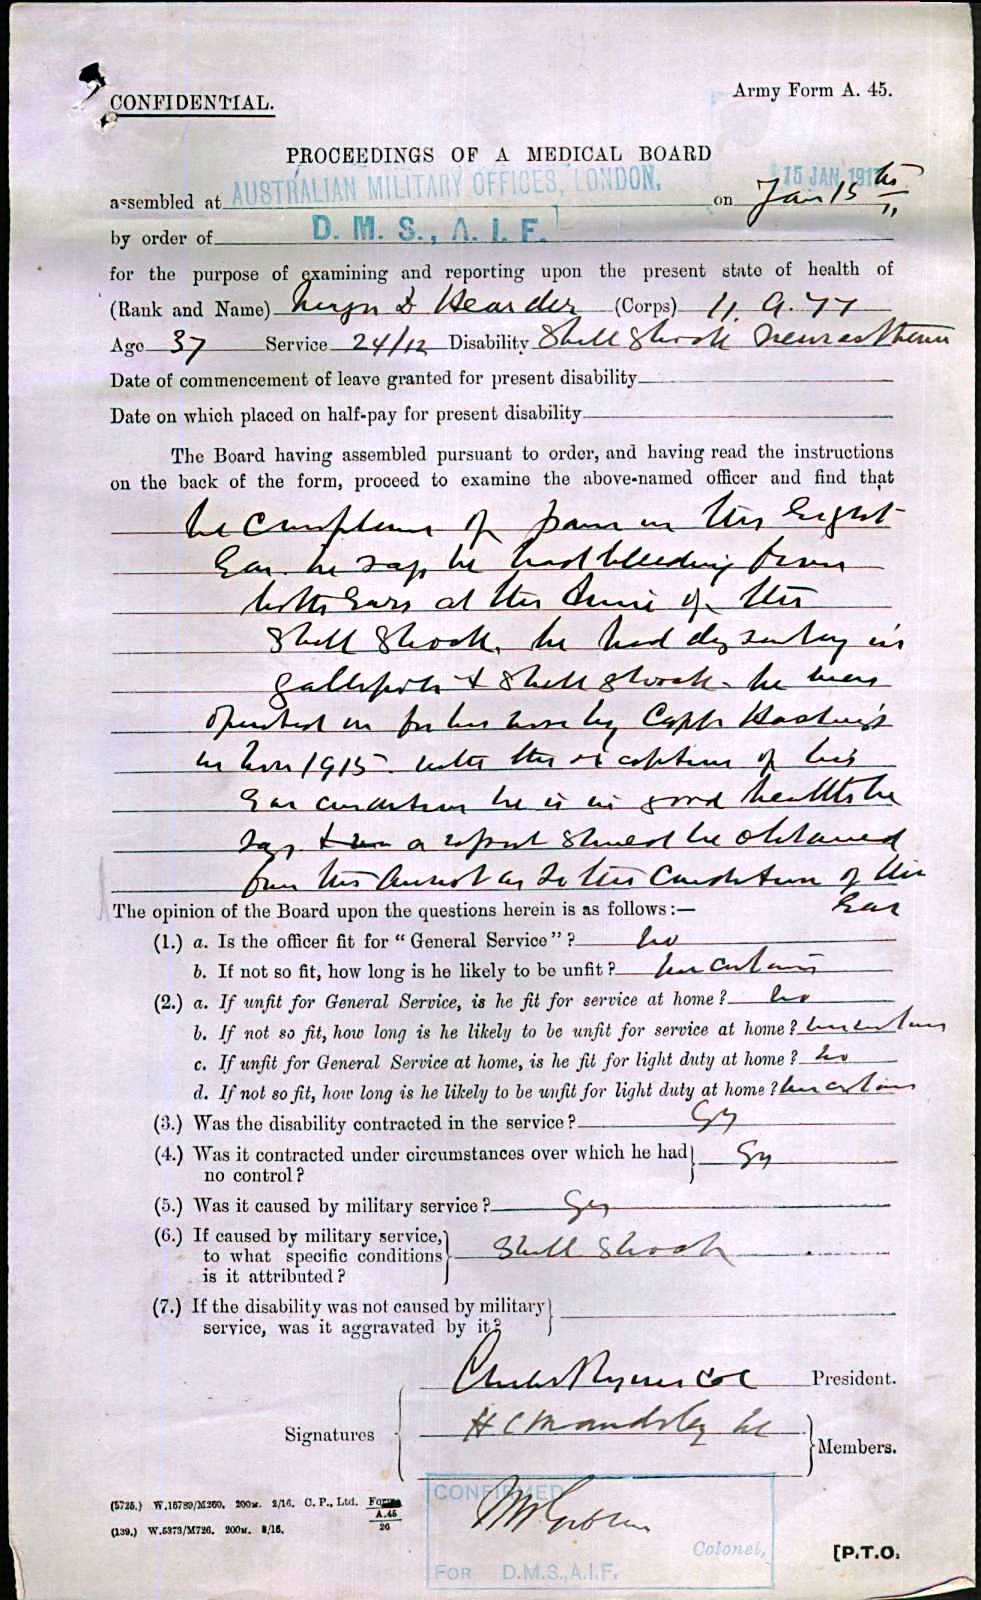 CONFIDENTIAL.
Army Form A. 45.
PROCEEDINGS OF A MEDICAL BOARD
assembled at AUSTRALIAN MILITARY OFFICES, LONDON, on Jan 15th 15 JAN 1917
by order of D. M. S., A. I. F.
for the purpose of examining and reporting upon the present state of health of
(Rank and Name) Major D Hearder (Corps) 11.
Age 37 Service 24/12 Disability Shell Shock Neurasthenia
Date of commencement of leave granted for present disability
Date on which placed on half-pay for present disability
The Board having assembled pursuant to order, and having read the instructions
on the back of the form, proceed to examine the above-named officer and find that
he complains of pain in the right
Ear. he says he had bleeding from
both Ears at the time of the
Shell Shock. he had dysentery in
Gallipoli & Shell Shock - he was
operated on for his nose by Capt
in Nov 1915. with the exception of his
Ear condition he is in good health he
says & a report should be obtained
from the Aurist as to the condition of the
Ear
The opinion of the Board upon the questions herein is as follows:—
(1.) a. Is the officer fit for "General Service"? No
b. If not so fit, how long is he likely to be unfit? uncertain
(2.) a. If unfit for General Service, is he fit for service at home? No
b. If not so fit, how long is he likely to be unfit for service at home? uncertain
c. If unfit for General Service at home, is he fit for light duty at home? No
d. If not so fit, how long is he likely to be unfit for light duty at home? uncertain
(3.) Was the disability contracted in the service? Yes
(4.) Was it contracted under circumstances over which he had Yes
no control?
(5.) Was it caused by military service? Yes
(6.) If caused by military service,
to what specific conditions Shell Shock
is it attributed?
(7.) If the disability was not caused by military
service, was it aggravated by it?
Charles Ryan Col President.
Signatures
H C Maudsley Members.
(5725.) W.15789/M260. 200M. 2/16. C. P., Ltd. Forms
A.45
26
(139.) W.5373/M726. 200M. 8/16.
CONFIRMED
Colonel,
FOR D.M.S., A.I.F.
[P.T.O.